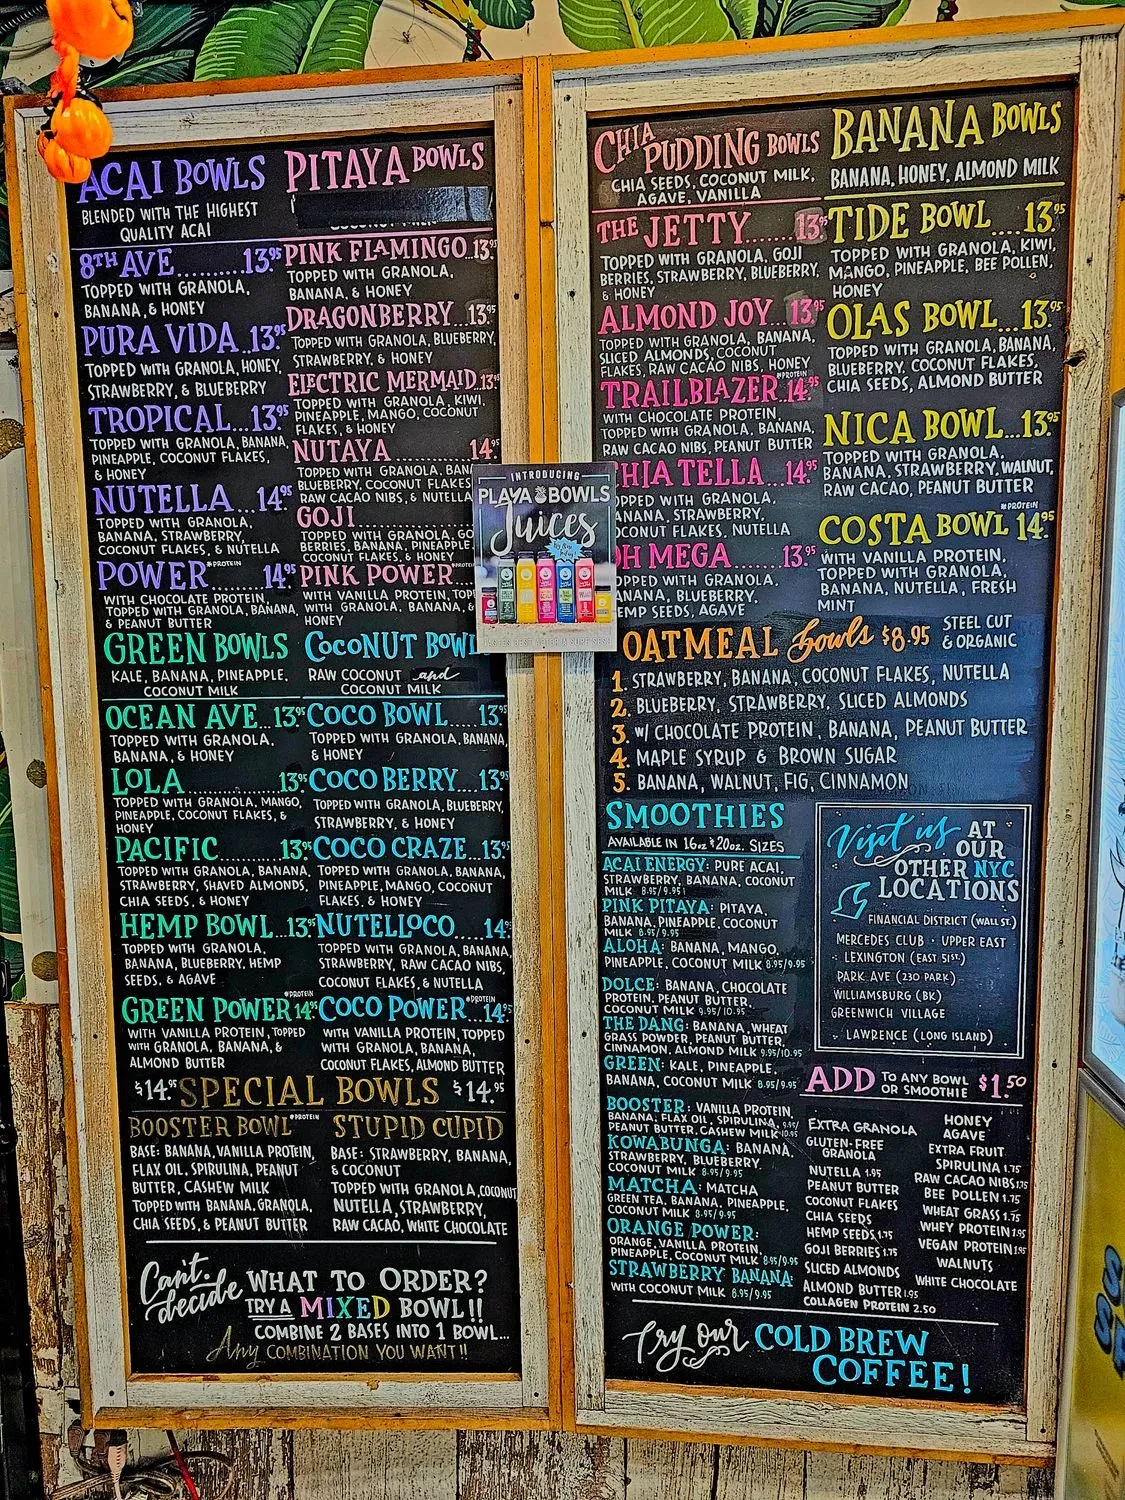 ACAI BOWLS
BLENDED WITH THE HIGHEST
QUALITY ACAI
8TH AVE.........13.95
TOPPED WITH GRANOLA,
BANANA, & HONEY
PURA VIDA..13.95
TOPPED WITH GRANOLA, HONEY,
STRAWBERRY, & BLUEBERRY
TROPICAL...13.95
TOPPED WITH GRANOLA, BANANA,
PINEAPPLE, COCONUT FLAKES,
& HONEY
NUTELLA...14.95
TOPPED WITH GRANOLA,
BANANA, STRAWBERRY,
COCONUT FLAKES, & NUTELLA
POWER *PROTEIN 14.95
WITH CHOCOLATE PROTEIN,
TOPPED WITH GRANOLA, BANANA,
& PEANUT BUTTER
PITAYA BOWLS
PINK FLAMINGO..13.95
TOPPED WITH GRANOLA,
BANANA, & HONEY
DRAGONBERRY...13.95
TOPPED WITH GRANOLA, BLUEBERRY,
STRAWBERRY, & HONEY
ELECTRIC MERMAID..13.95
TOPPED WITH GRANOLA, KIWI,
PINEAPPLE, MANGO, COCONUT
FLAKES, & HONEY
NUTAYA 14.95
TOPPED WITH GRANOLA,
BLUEBERRY, COCONUT FLAKES
RAW CACAO NIBS, & NUTELLA
GOJI
TOPPED WITH GRANOLA,
BERRIES, BANANA, PINEAPPLE,
COCONUT FLAKES, & HONEY
PINK POWER
WITH VANILLA PROTEIN,
WITH GRANOLA, BANANA, &
HONEY
GREEN BOWLS
KALE, BANANA, PINEAPPLE,
COCONUT MILK
OCEAN AVE..13.95
TOPPED WITH GRANOLA,
BANANA, & HONEY
LOLA.............13.95
TOPPED WITH GRANOLA, MANGO,
PINEAPPLE, COCONUT FLAKES, &
HONEY
PACIFIC.........13.95
TOPPED WITH GRANOLA, BANANA,
STRAWBERRY, SHAVED ALMONDS,
CHIA SEEDS, & HONEY
HEMP BOWL..13.95
TOPPED WITH GRANOLA,
BANANA, BLUEBERRY, HEMP
SEEDS, & AGAVE
GREEN POWER *PROTEIN 14.95
WITH VANILLA PROTEIN, TOPPED
WITH GRANOLA, BANANA, &
ALMOND BUTTER
COCONUT
RAW COCONUT and
COCONUT MILK
COCO BOWL.....13.95
TOPPED WITH GRANOLA, BANANA,
& HONEY
COCO BERRY....13.95
TOPPED WITH GRANOLA, BLUEBERRY,
STRAWBERRY, & HONEY
COCO CRAZE...13.95
TOPPED WITH GRANOLA, BANANA,
PINEAPPLE, MANGO, COCONUT
FLAKES, & HONEY
NUTELLOCO.....14.95
TOPPED WITH GRANOLA, BANANA,
STRAWBERRY, RAW CACAO NIBS,
COCONUT FLAKES, & NUTELLA
COCO POWER *PROTEIN 14.95
WITH VANILLA PROTEIN, TOPPED
WITH GRANOLA, BANANA,
COCONUT FLAKES, ALMOND BUTTER
$14.95 SPECIAL BOWLS $14.95
BOOSTER BOWL *PROTEIN
BASE: BANANA, VANILLA PROTEIN,
FLAX OIL, SPIRULINA, PEANUT
BUTTER, CASHEW MILK
TOPPED WITH BANANA, GRANOLA,
CHIA SEEDS, & PEANUT BUTTER
STUPID CUPID
BASE: STRAWBERRY, BANANA,
& COCONUT
TOPPED WITH GRANOLA, COCONUT
NUTELLA, STRAWBERRY,
RAW CACAO, WHITE CHOCOLATE
Can't decide WHAT TO ORDER?
TRY A MIXED BOWL!!
COMBINE 2 BASES INTO 1 BOWL...
Any COMBINATION YOU WANT!!
INTRODUCING
PLAYA BOWLS
Juices
CHIA PUDDING BOWLS
CHIA SEEDS, COCONUT MILK,
AGAVE, VANILLA
THE JETTY.......13.95
TOPPED WITH GRANOLA, GOJI
BERRIES, STRAWBERRY, BLUEBERRY,
& HONEY
ALMOND JOY..13.95
TOPPED WITH GRANOLA, BANANA,
SLICED ALMONDS, COCONUT
FLAKES, RAW CACAO NIBS, HONEY
TRAILBLAZER *PROTEIN 14.95
WITH CHOCOLATE PROTEIN,
TOPPED WITH GRANOLA, BANANA,
RAW CACAO NIBS, PEANUT BUTTER
CHIA TELLA...14.95
TOPPED WITH GRANOLA,
BANANA, STRAWBERRY,
COCONUT FLAKES, NUTELLA
OH MEGA......13.95
TOPPED WITH GRANOLA,
BANANA, BLUEBERRY,
HEMP SEEDS, AGAVE
BANANA BOWLS
BANANA, HONEY, ALMOND MILK
TIDE BOWL....13.95
TOPPED WITH GRANOLA, KIWI,
MANGO, PINEAPPLE, BEE POLLEN,
HONEY
OLAS BOWL...13.95
TOPPED WITH GRANOLA, BANANA,
BLUEBERRY, COCONUT FLAKES,
CHIA SEEDS, ALMOND BUTTER
NICA BOWL...13.95
TOPPED WITH GRANOLA,
BANANA, STRAWBERRY, WALNUT,
RAW CACAO, PEANUT BUTTER
COSTA BOWL *PROTEIN 14.95
WITH VANILLA PROTEIN,
TOPPED WITH GRANOLA,
BANANA, NUTELLA, FRESH
MINT
OATMEAL Bowls $8.95 STEEL CUT
& ORGANIC
1. STRAWBERRY, BANANA, COCONUT FLAKES, NUTELLA
2. BLUEBERRY, STRAWBERRY, SLICED ALMONDS
3. W/ CHOCOLATE PROTEIN, BANANA, PEANUT BUTTER
4. MAPLE SYRUP & BROWN SUGAR
5. BANANA, WALNUT, FIG, CINNAMON
SMOOTHIES
AVAILABLE IN 16oz & 20oz. SIZES
ACAI ENERGY: PURE ACAI,
STRAWBERRY, BANANA, COCONUT
MILK 8.95/9.95
PINK PITAYA: PITAYA,
BANANA, PINEAPPLE, COCONUT
MILK 8.95/9.95
ALOHA: BANANA, MANGO,
PINEAPPLE, COCONUT MILK 8.95/9.95
DOLCE: BANANA, CHOCOLATE
PROTEIN, PEANUT BUTTER,
COCONUT MILK 9.95/10.95
THE DANG: BANANA, WHEAT
GRASS POWDER, PEANUT BUTTER,
CINNAMON, ALMOND MILK 9.95/10.95
GREEN: KALE, PINEAPPLE,
BANANA, COCONUT MILK 8.95/9.95
BOOSTER: VANILLA PROTEIN,
BANANA, FLAX OIL, SPIRULINA, 9.95/
PEANUT BUTTER, CASHEW MILK 10.95
KOWABUNGA: BANANA,
STRAWBERRY, BLUEBERRY,
COCONUT MILK 8.95/9.95
MATCHA: MATCHA
GREEN TEA, BANANA, PINEAPPLE,
COCONUT MILK 8.95/9.95
ORANGE POWER:
ORANGE, VANILLA PROTEIN,
PINEAPPLE, COCONUT MILK 8.95/9.95
STRAWBERRY BANANA:
WITH COCONUT MILK 8.95/9.95
Visit us AT
OUR
OTHER NYC
LOCATIONS
FINANCIAL DISTRICT (WALL ST.)
MERCEDES CLUB · UPPER EAST
· LEXINGTON (EAST 51ST.)
PARK AVE (230 PARK)
WILLIAMSBURG (BK)
GREENWICH VILLAGE
· LAWRENCE (LONG ISLAND)
ADD TO ANY BOWL
OR SMOOTHIE $1.50
EXTRA GRANOLA
GLUTEN-FREE
GRANOLA
NUTELLA 1.95
PEANUT BUTTER
COCONUT FLAKES
CHIA SEEDS
HEMP SEEDS 1.75
GOJI BERRIES 1.75
SLICED ALMONDS
ALMOND BUTTER 1.95
COLLAGEN PROTEIN 2.50
HONEY
AGAVE
EXTRA FRUIT
SPIRULINA 1.75
RAW CACAO NIBS 1.75
BEE POLLEN 1.75
WHEAT GRASS 1.75
WHEY PROTEIN 1.95
VEGAN PROTEIN 1.95
WALNUTS
WHITE CHOCOLATE
Try our COLD BREW
COFFEE!